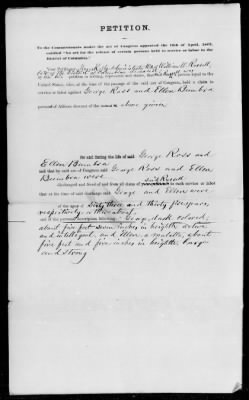 PETITION.
To the Commissioners under the act of Congress approved the 16th of April, 1862,
entitled "An act for the release of certain persons held to service or labor in the
District of Columbia."
Your Petitioner,
of the District of Columbia
United States, who, at the time of the passage of the said act of Congress, held a claim to
service or labor against George Ross and Ellen Bumbra
persons of African descent of the names above given
for and during the life of said George Ross and
Ellen Bumbra
and that by said act of Congress said George Ross and Ellen
Bumbra were
discharged and freed of and from all claim of said Russell to such service or labor
that at the time of said discharge said George and Ellen were
of the ages of Sixty three and thirty five years,
respectively
and of the personal description following: George dark colored,
about five feet seven inches in heighth active
and intelligent, and Ellen, a mulatto, about
five feet and five inches in heighth, large
and strong